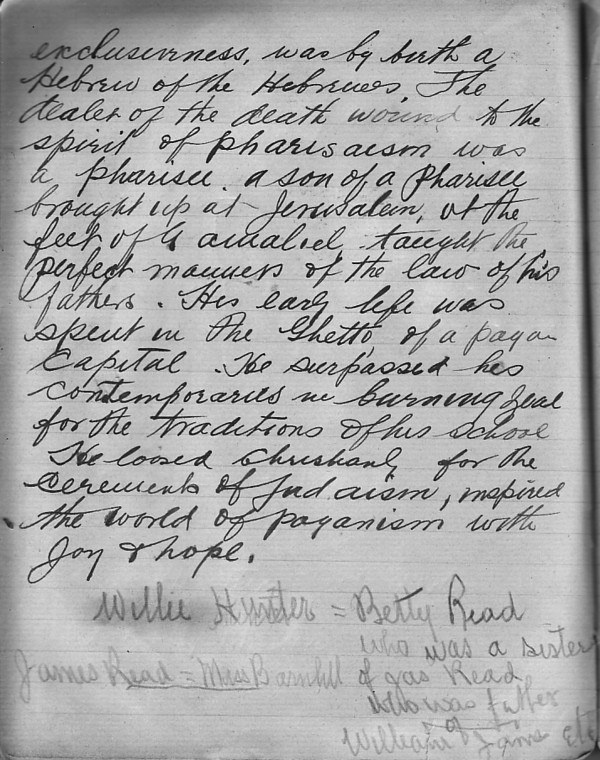 exclusiveness, was by birth a
Hebrew of the Hebrews. The
dealer of the death wound to the
spirit of pharisaism was
a pharisee, a son of a Pharisee
brought up at Jerusalem, at the
feet of Gamaliel, taught the
perfect manners of the law of his
fathers. His early life was
spent in the Ghetto, of a pagan
Capital. He surpassed his
contemporaries in burning zeal
for the traditions of his school
He loosed Christianity for the
cerements of Judaism, inspired
the world of paganism with
Joy & hope.
Willie Hunter = Betty Read
who was a sister
James Read = Miss Barnhill of gas Read
who was father
of
William James etc